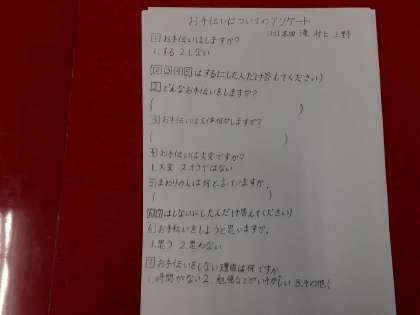 お手伝いについてのアンケート
本田 滝 村上 上野
1 お手伝いはしますか?
1.する 2.しない
2 3 4 5 はするにした人だけ答えてください)
2 どんなお手伝いをしますか?
( )
3 お手伝いは大体何分しますか?
( )
4 お手伝いは大変ですか?
1.大変 2.そうではない
5 まわりの人は何と言っていますか。
( )
6 7 はしないにした人だけ答えてください)
6 お手伝いをしようと思いますか。
1.思う 2.思わない
7 お手伝いをしない理由は何ですか
1.時間がない 2.勉強などがいそがしい 3.その他(